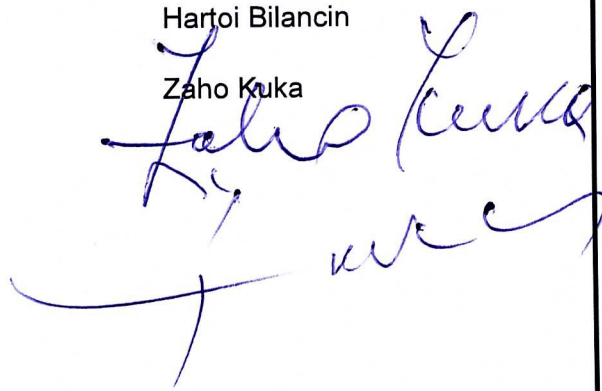 Hartoi Bilancin
Zaho Kuka
Zaho Kuka